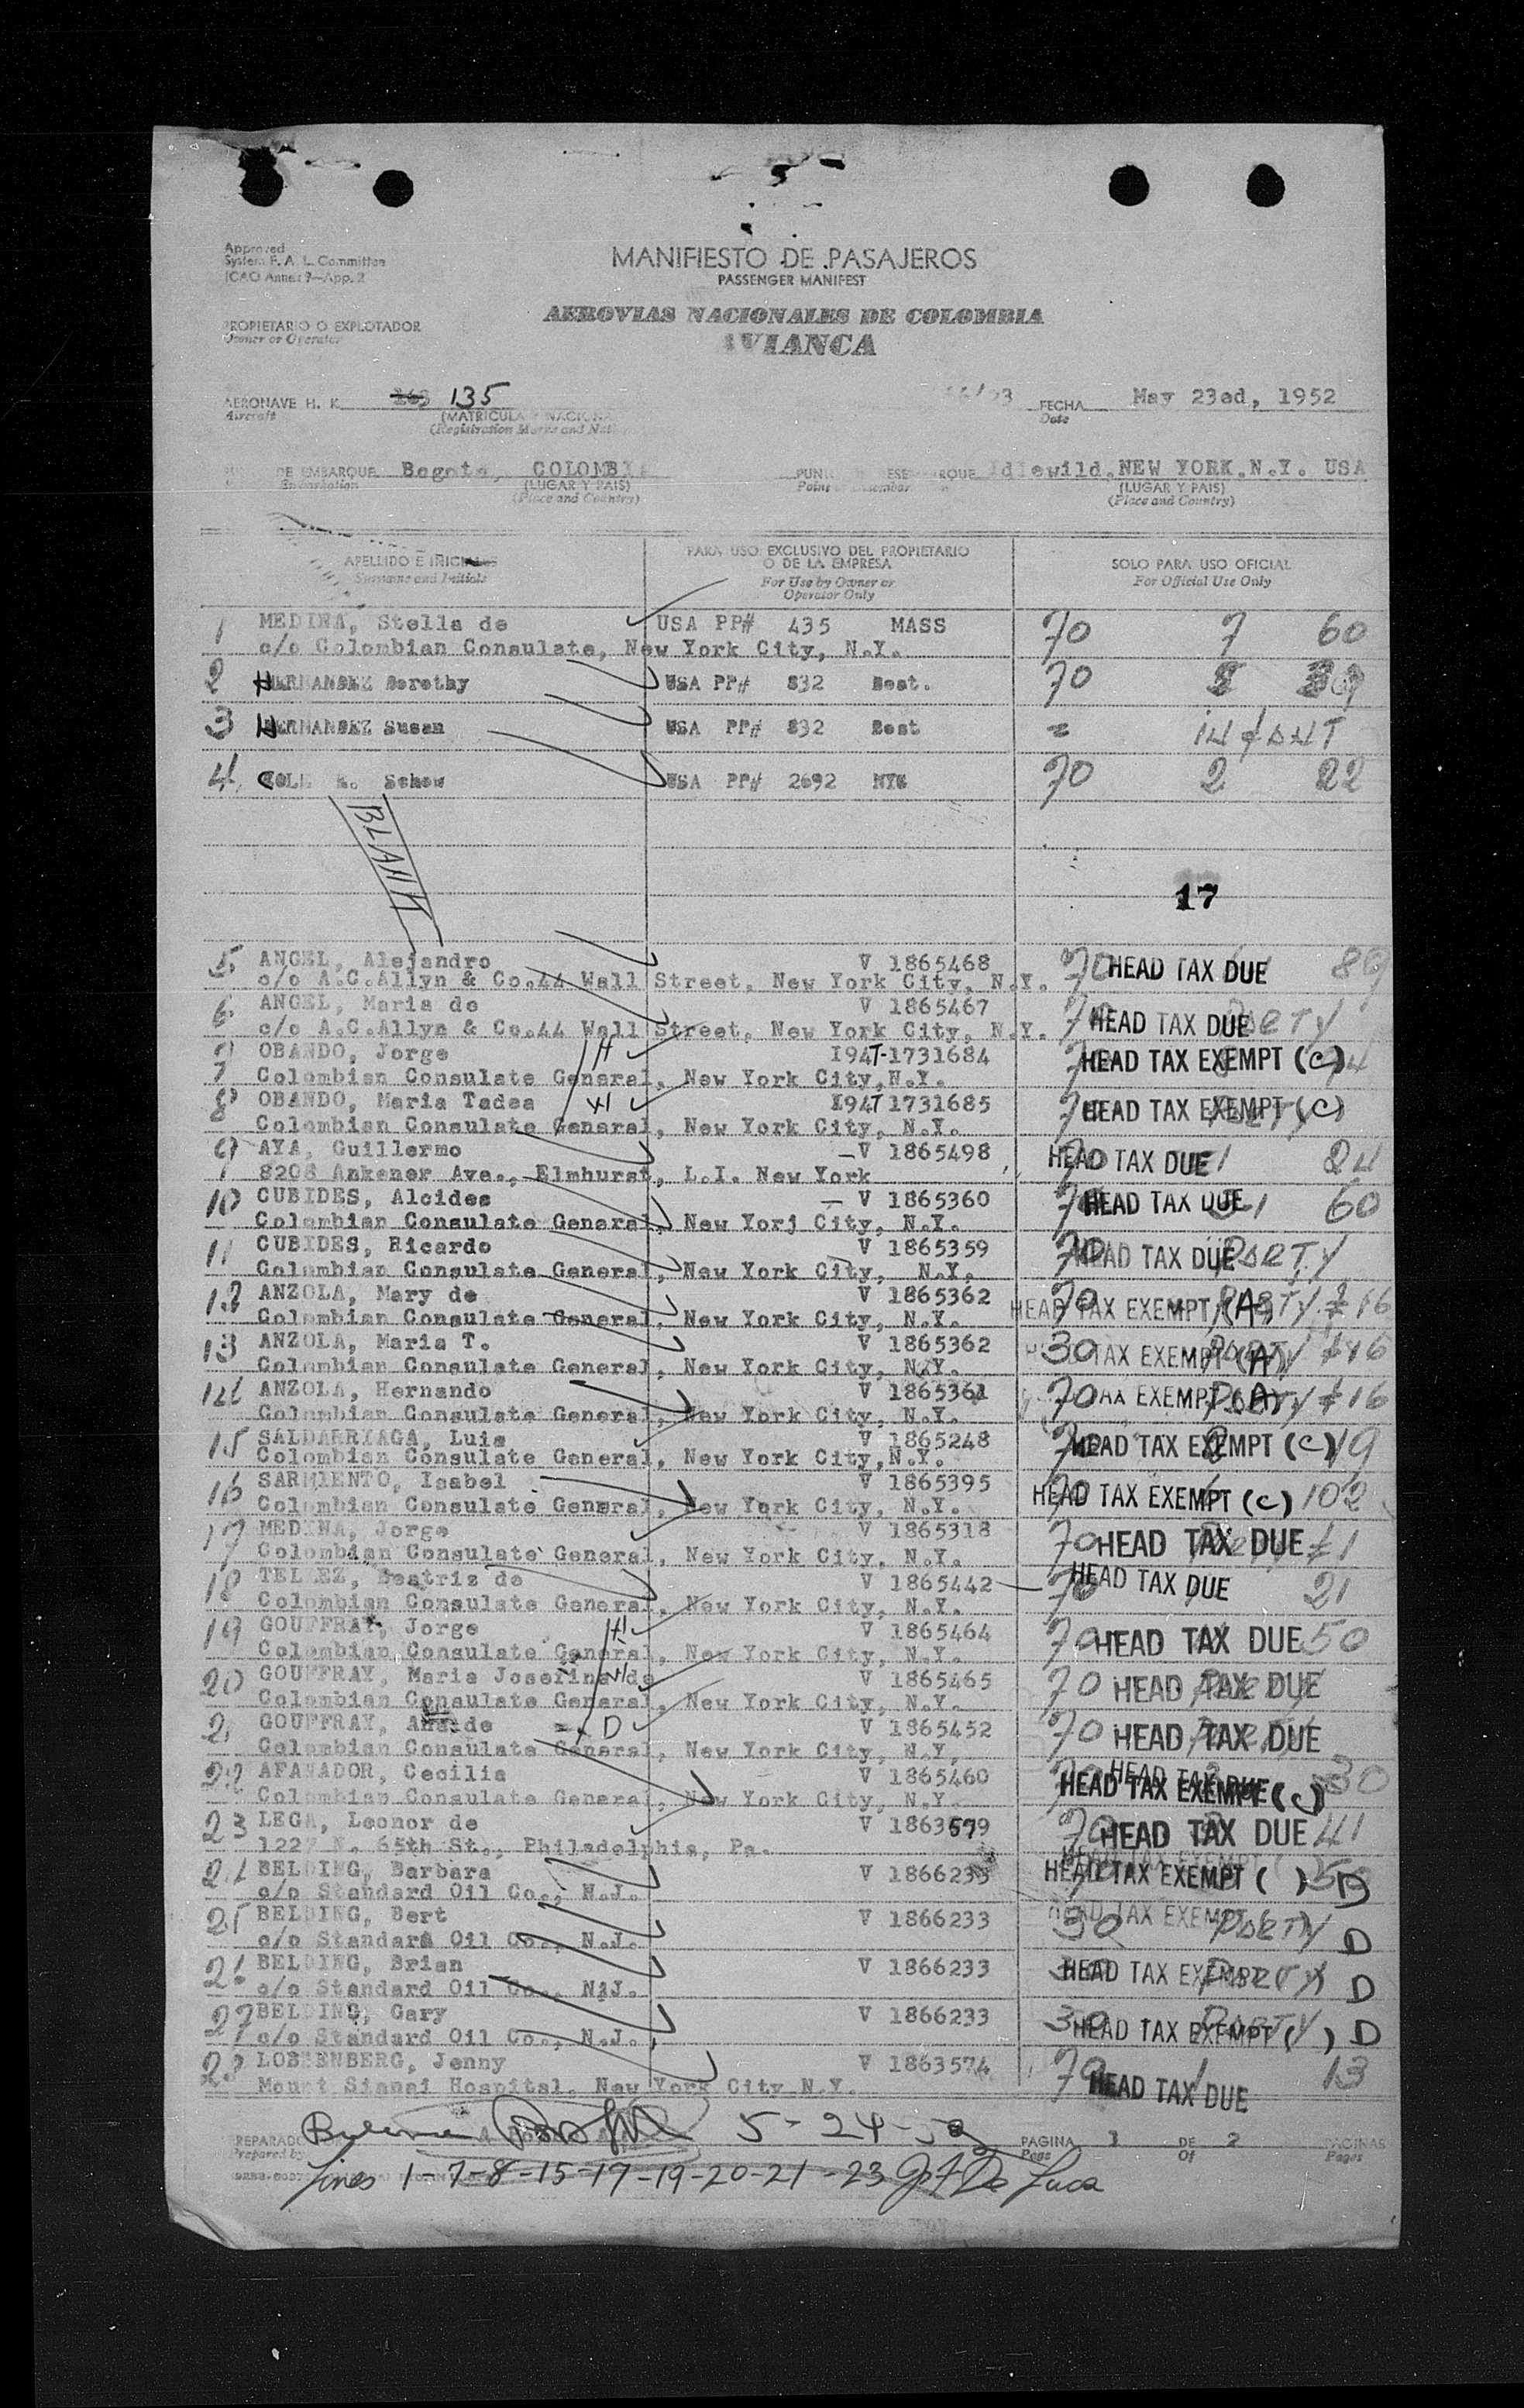 Approved
System F. A. L. Committee
ICAO Annex 9—App. 2
MANIFIESTO DE PASAJEROS
PASSENGER MANIFEST
AEROVIAS NACIONALES DE COLOMBIA
AVIANCA
PROPIETARIO O EXPLOTADOR
Owner or Operator
AERONAVE H. K. 135
Aircraft
(MATRICULA Y NACIONA
(Registration Marks and Nat
FECHA May 23ed, 1952
Date
DE EMBARQUE Bogota, COLOMBIA
Embarkation
(LUGAR Y PAIS)
(Place and Country)
Idlewild, NEW YORK.N.Y. USA
(LUGAR Y PAIS)
(Place and Country)
APELLIDO E INICIALES
Surname and Initials
PARA USO EXCLUSIVO DEL PROPIETARIO
O DE LA EMPRESA
For Use by Owner or
Operator Only
SOLO PARA USO OFICIAL
For Official Use Only
1 MEDINA, Stella de USA PP# 435 MASS 70 7 60
c/o Colombian Consulate, New York City, N.Y.
2 HERNANDEZ Dorothy USA PP# 832 Best. 70
3 HERNANDEZ Susan USA PP# 832 Best = INFANT
4 COLE Schow USA PP# 2692 NYC 70 2 22
BLANK
17
5 ANGEL, Alejandro V 1865468 70 HEAD TAX DUE 89
c/o A.C.Allyn & Co.44 Wall Street, New York City, N.Y.
6 ANGEL, Maria de V 1865467 70 HEAD TAX DUE PARTY
c/o A.C.Allyn & Co.44 Wall Street, New York City, N.Y.
7 OBANDO, Jorge H I94T-1731684 70 HEAD TAX EXEMPT (C)
Colombian Consulate General, New York City,N.Y.
8 OBANDO, Maria Tadea I94T 1731685 70 HEAD TAX EXEMPT (C)
Colombian Consulate General, New York City, N.Y.
9 AYA, Guillermo V 1865498 70 HEAD TAX DUE 24
8208 Ankener Ave., Elmhurst, L.I. New York
10 CUBIDES, Alcides V 1865360 70 HEAD TAX DUE 60
Colombian Consulate General, New Yorj City, N.Y.
11 CUBIDES, Ricardo V 1865359 70 HEAD TAX DUE PARTY
Colombian Consulate General, New York City, N.Y.
12 ANZOLA, Mary de V 1865362 70 HEAD TAX EXEMPT (A) PARTY #16
Colombian Consulate General, New York City, N.Y.
13 ANZOLA, Maria T. V 1865362 30 HEAD TAX EXEMPT (A) PARTY #16
Colombian Consulate General, New York City, N.Y.
14 ANZOLA, Hernando V 1865361 70 TAX EXEMPT (A) PARTY #16
Colombian Consulate General, New York City, N.Y.
15 SALDARRIAGA, Luis V 1865248 70 HEAD TAX EXEMPT (C) 19
Colombian Consulate General, New York City,N.Y.
16 SARMIENTO, Isabel V 1865395 70 HEAD TAX EXEMPT (C) 102
Colombian Consulate General, New York City, N.Y.
17 MEDINA, Jorge V 1865318 70 HEAD TAX DUE #1
Colombian Consulate General, New York City, N.Y.
18 TELLEZ, Beatriz de V 1865442 70 HEAD TAX DUE 21
Colombian Consulate General, New York City, N.Y.
19 GOUFFRAY, Jorge H V 1865464 70 HEAD TAX DUE 50
Colombian Consulate General, New York City, N.Y.
20 GOUFFRAY, Maria Josefina de V 1865465 70 HEAD TAX DUE
Colombian Consulate General, New York City, N.Y.
GOUFFRAY, de D V 1865452 70 HEAD TAX DUE
Colombian Consulate General, New York City, N.Y.
22 AFANADOR, Cecilia V 1865460 HEAD TAX DUE HEAD TAX EXEMPT (C) 30
Colombian Consulate General, New York City, N.Y.
23 LEGA, Leonor de V 1863579 70 HEAD TAX DUE 41
1227 N. 65th St., Philadelphia, Pa.
24 BELDING, Barbara V 1866233 HEAD TAX EXEMPT ( ) D
c/o Standard Oil Co., N.J.
25 BELDING, Bert V 1866233 30 HEAD TAX EXEMPT PARTY D
c/o Standard Oil Co., N.J.
BELDING, Brian V 1866233 HEAD TAX EXEMPT PARTY D
c/o Standard Oil Co., N.J.
27 BELDING, Gary V 1866233 30 HEAD TAX EXEMPT ( ) PARTY D
c/o Standard Oil Co., N.J.
LOBTENBERG, Jenny V 1863574 70 HEAD TAX DUE 1 13
Mount Sianai Hospital, New York City N.Y.
5-24-52
PREPARADO
Prepared by
PAGINA 1 DE 2 PAGINAS
Page Of Pages
Lines 1-7-8-15-17-19-20-21-23